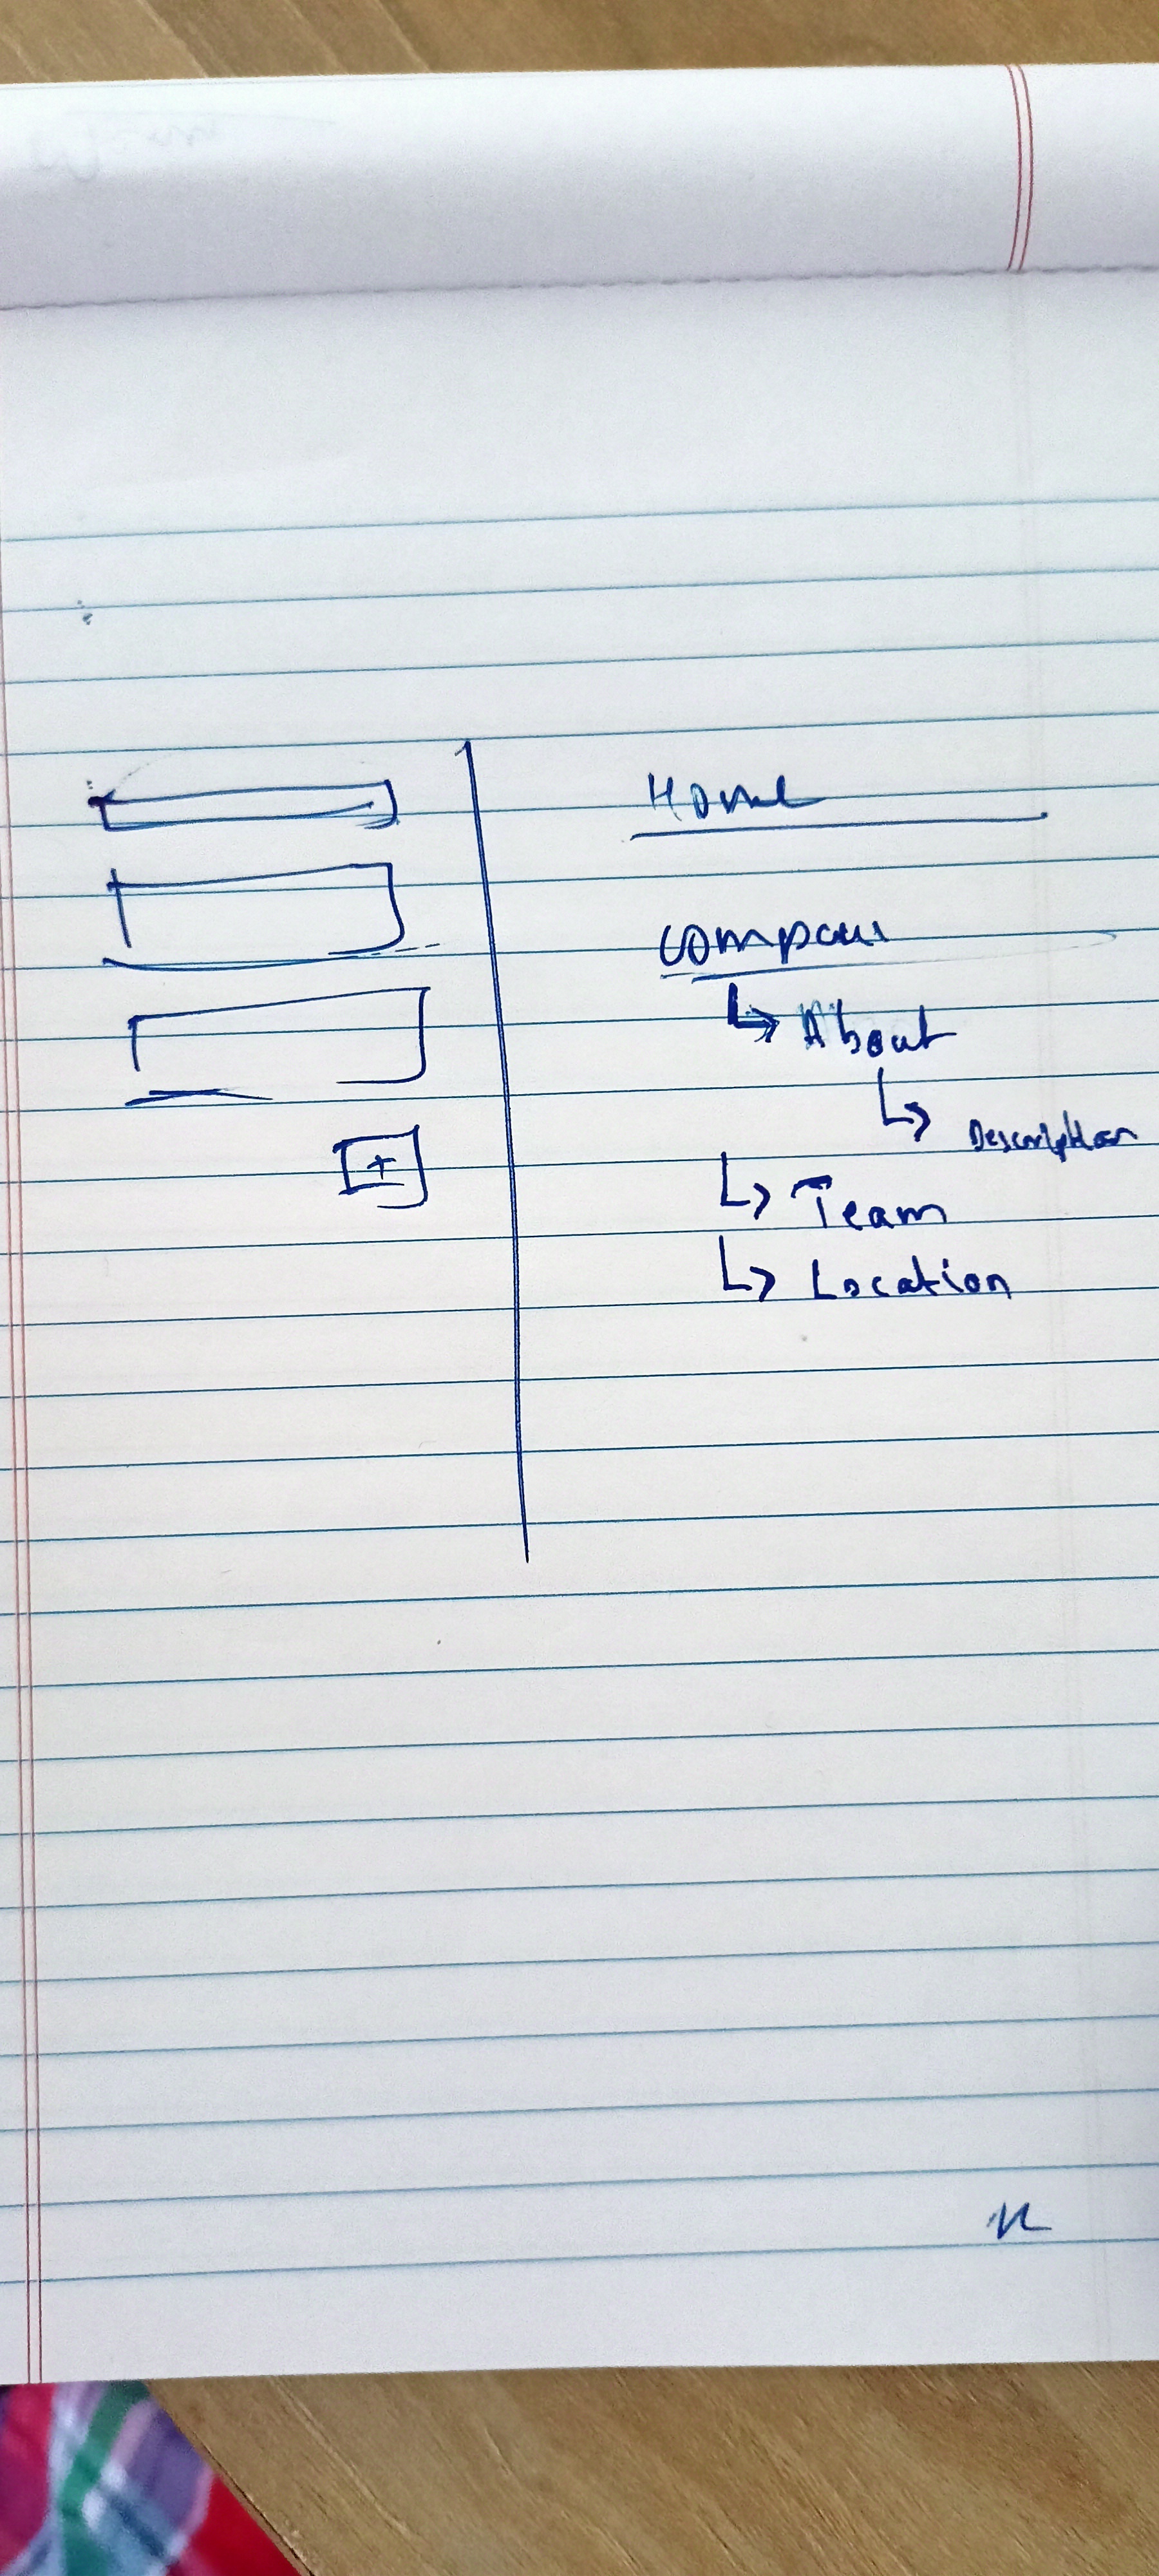 Home
↳ About
↳ Description
↳ Team
↳ Location
+